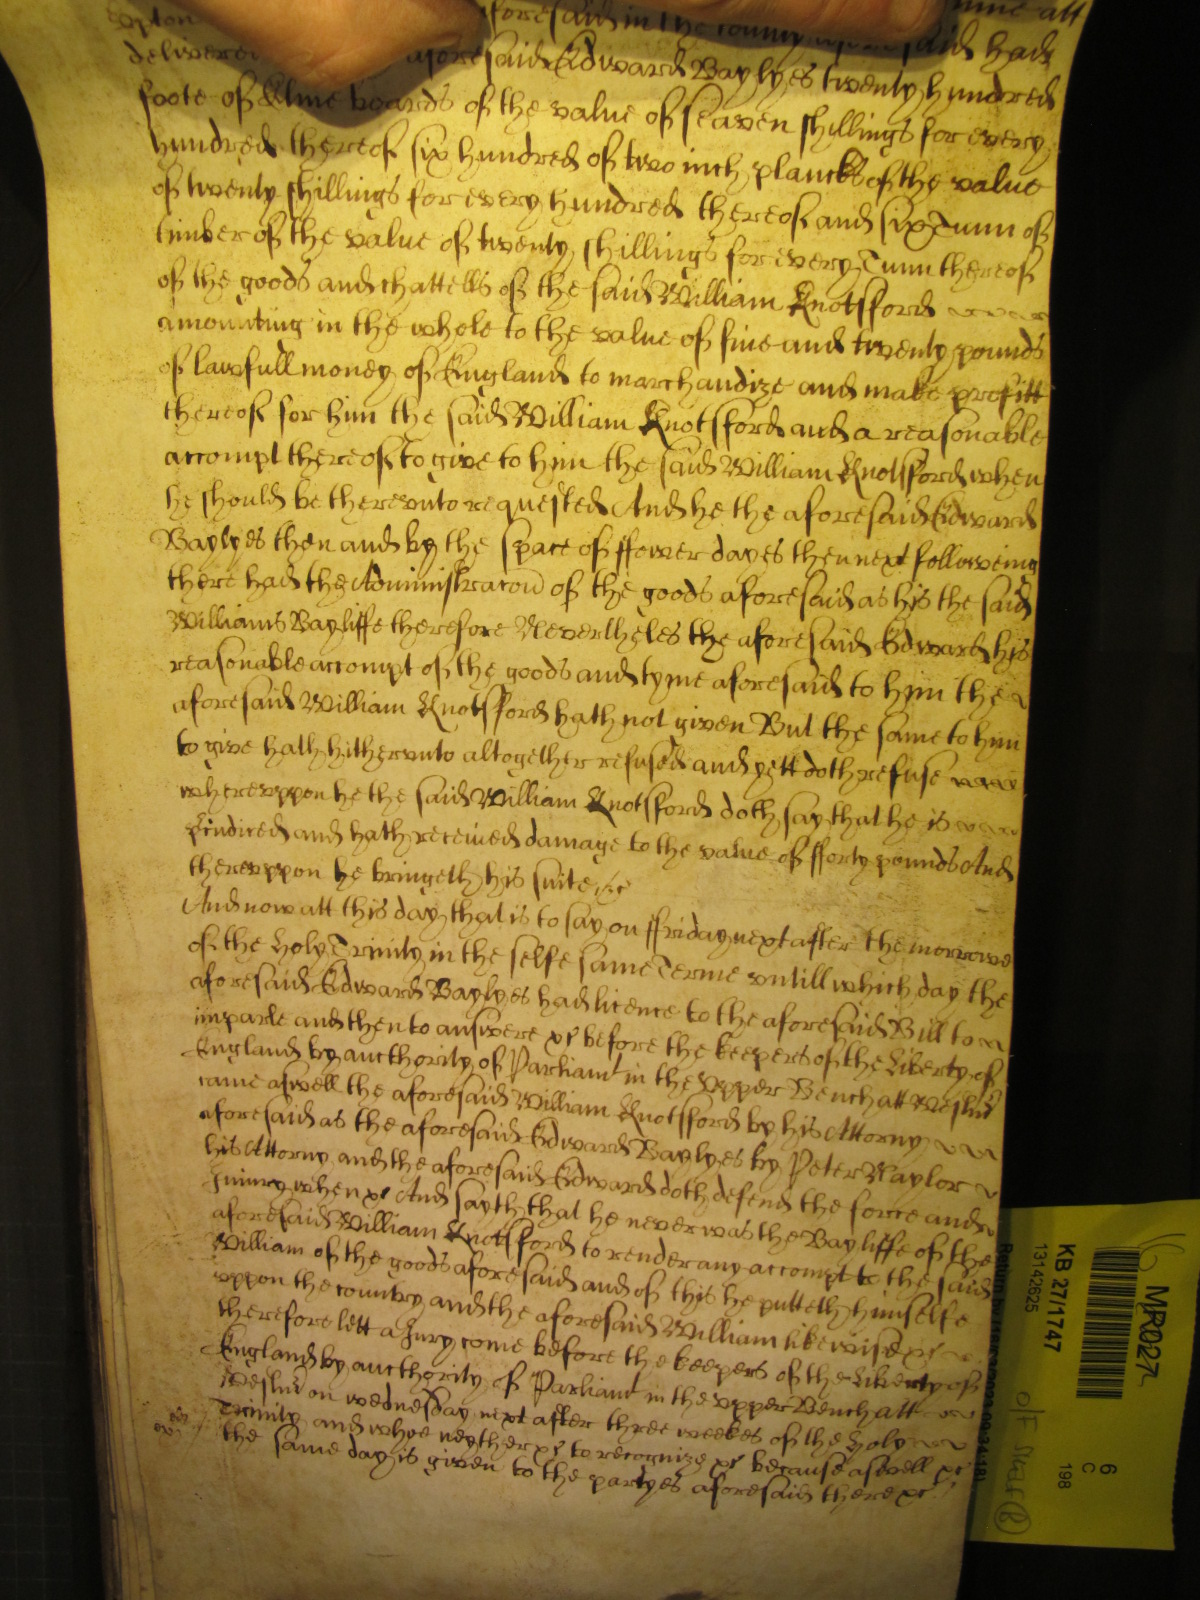 vpton aforesaid in the County aforesaid had
delivered aforesaid Edward Baylyes twenty hundred
foote of Elme boards of the value of seaven shillings for every
hundred thereof six hundred of two inch plancks of the value
of twenty shillings for every hundred thereof and six Tunn of
timber of the value of twenty shillings for every Tunn thereof
of the goods and chattells of the said William Knotsford
amounting in the whole to the value of five and twenty pounds
of lawfull money of England to marchandize and make profitt
thereof for him the said William Knotsford and a reasonable
accompt thereof to give to him the said William Knotsford when
he should be therevnto requested And he the aforesaid Edward
Baylyes then and by the space of ffower dayes then next followeing
there had the Administracon of the goods aforesaid as his the said
Williams Bayliffe therefore Neverthelesse the aforesaid Edward his
reasonable accompt of the goods and tyme aforesaid to him the
aforesaid William Knotsford hath not given But the same to him
to give hath hithervnto altogether refused and yett doth refuse
wherevppon he the said William Knotsford doth say that he is
preiudiced and hath received damage to the value of fforty pounds And
therevppon he bringeth his suite &c
And now att this day that is to say on ffriday next after the morrowe
of the Holy Trinity in the selfe same Terme vntill which day the
aforesaid Edward Baylyes had licence to the aforesaid Bill to
imparle and then to answere &c before the keepers of the Liberty of
England by aucthority of Parliamt in the Vpper Bench att Westmr
came aswell the aforesaid William Knotsford by his Attorny
aforesaid as the aforesaid Edward Baylyes by Peter Naylor
his Attorny and the aforesaid Edward doth defend the force and
Iniury when &c And sayth that he never was the Bayliffe of the
aforesaid William Knotsford to render any accompt to the said
William of the goods aforesaid and of this he putteth himselfe
vppon the country and the aforesaid William likewise &c
therefore lett a Jury come before the keepers of the Liberty of
England by aucthority of Parliamt in the vpper Bench att
Westmr on wednesday next after three weekes of the Holy
Trinity and whoe neyther &c to recognize &c because aswell &c
the same day is given to the partyes aforesaid there &c
MR027
KB 27/1747
13142625
6
C
198